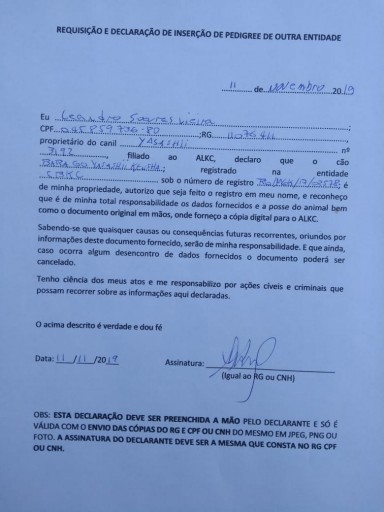 REQUISIÇÃO E DECLARAÇÃO DE INSERÇÃO DE PEDIGREE DE OUTRA ENTIDADE
11 de novembro 2019
Eu Leandro Soares Vieira ;
CPF ;RG
proprietário do canil YASASHII nº
3192 , filiado ao ALKC, declaro que o cão
registrado na entidade
sob o número de registro é
de minha propriedade, autorizo que seja feito o registro em meu nome, e reconheço
que é de minha total responsabilidade os dados fornecidos e a posse do animal bem
como o documento original em mãos, onde forneço a cópia digital para o ALKC.
Sabendo-se que quaisquer causas ou consequências futuras recorrentes, oriundos por
informações deste documento fornecido, serão de minha responsabilidade. E que ainda,
caso ocorra algum desencontro de dados fornecidos o documento poderá ser
cancelado.
Tenho ciência dos meus atos e me responsabilizo por ações cíveis e criminais que
possam recorrer sobre as informações aqui declaradas.
O acima descrito é verdade e dou fé
Data: 11 /11 /2019 Assinatura:
(Igual ao RG ou CNH)
OBS: ESTA DECLARAÇÃO DEVE SER PREENCHIDA A MÃO PELO DECLARANTE E SÓ É
VÁLIDA COM O ENVIO DAS CÓPIAS DO RG E CPF OU CNH DO MESMO EM JPEG, PNG OU
FOTO. A ASSINATURA DO DECLARANTE DEVE SER A MESMA QUE CONSTA NO RG CPF
OU CNH.